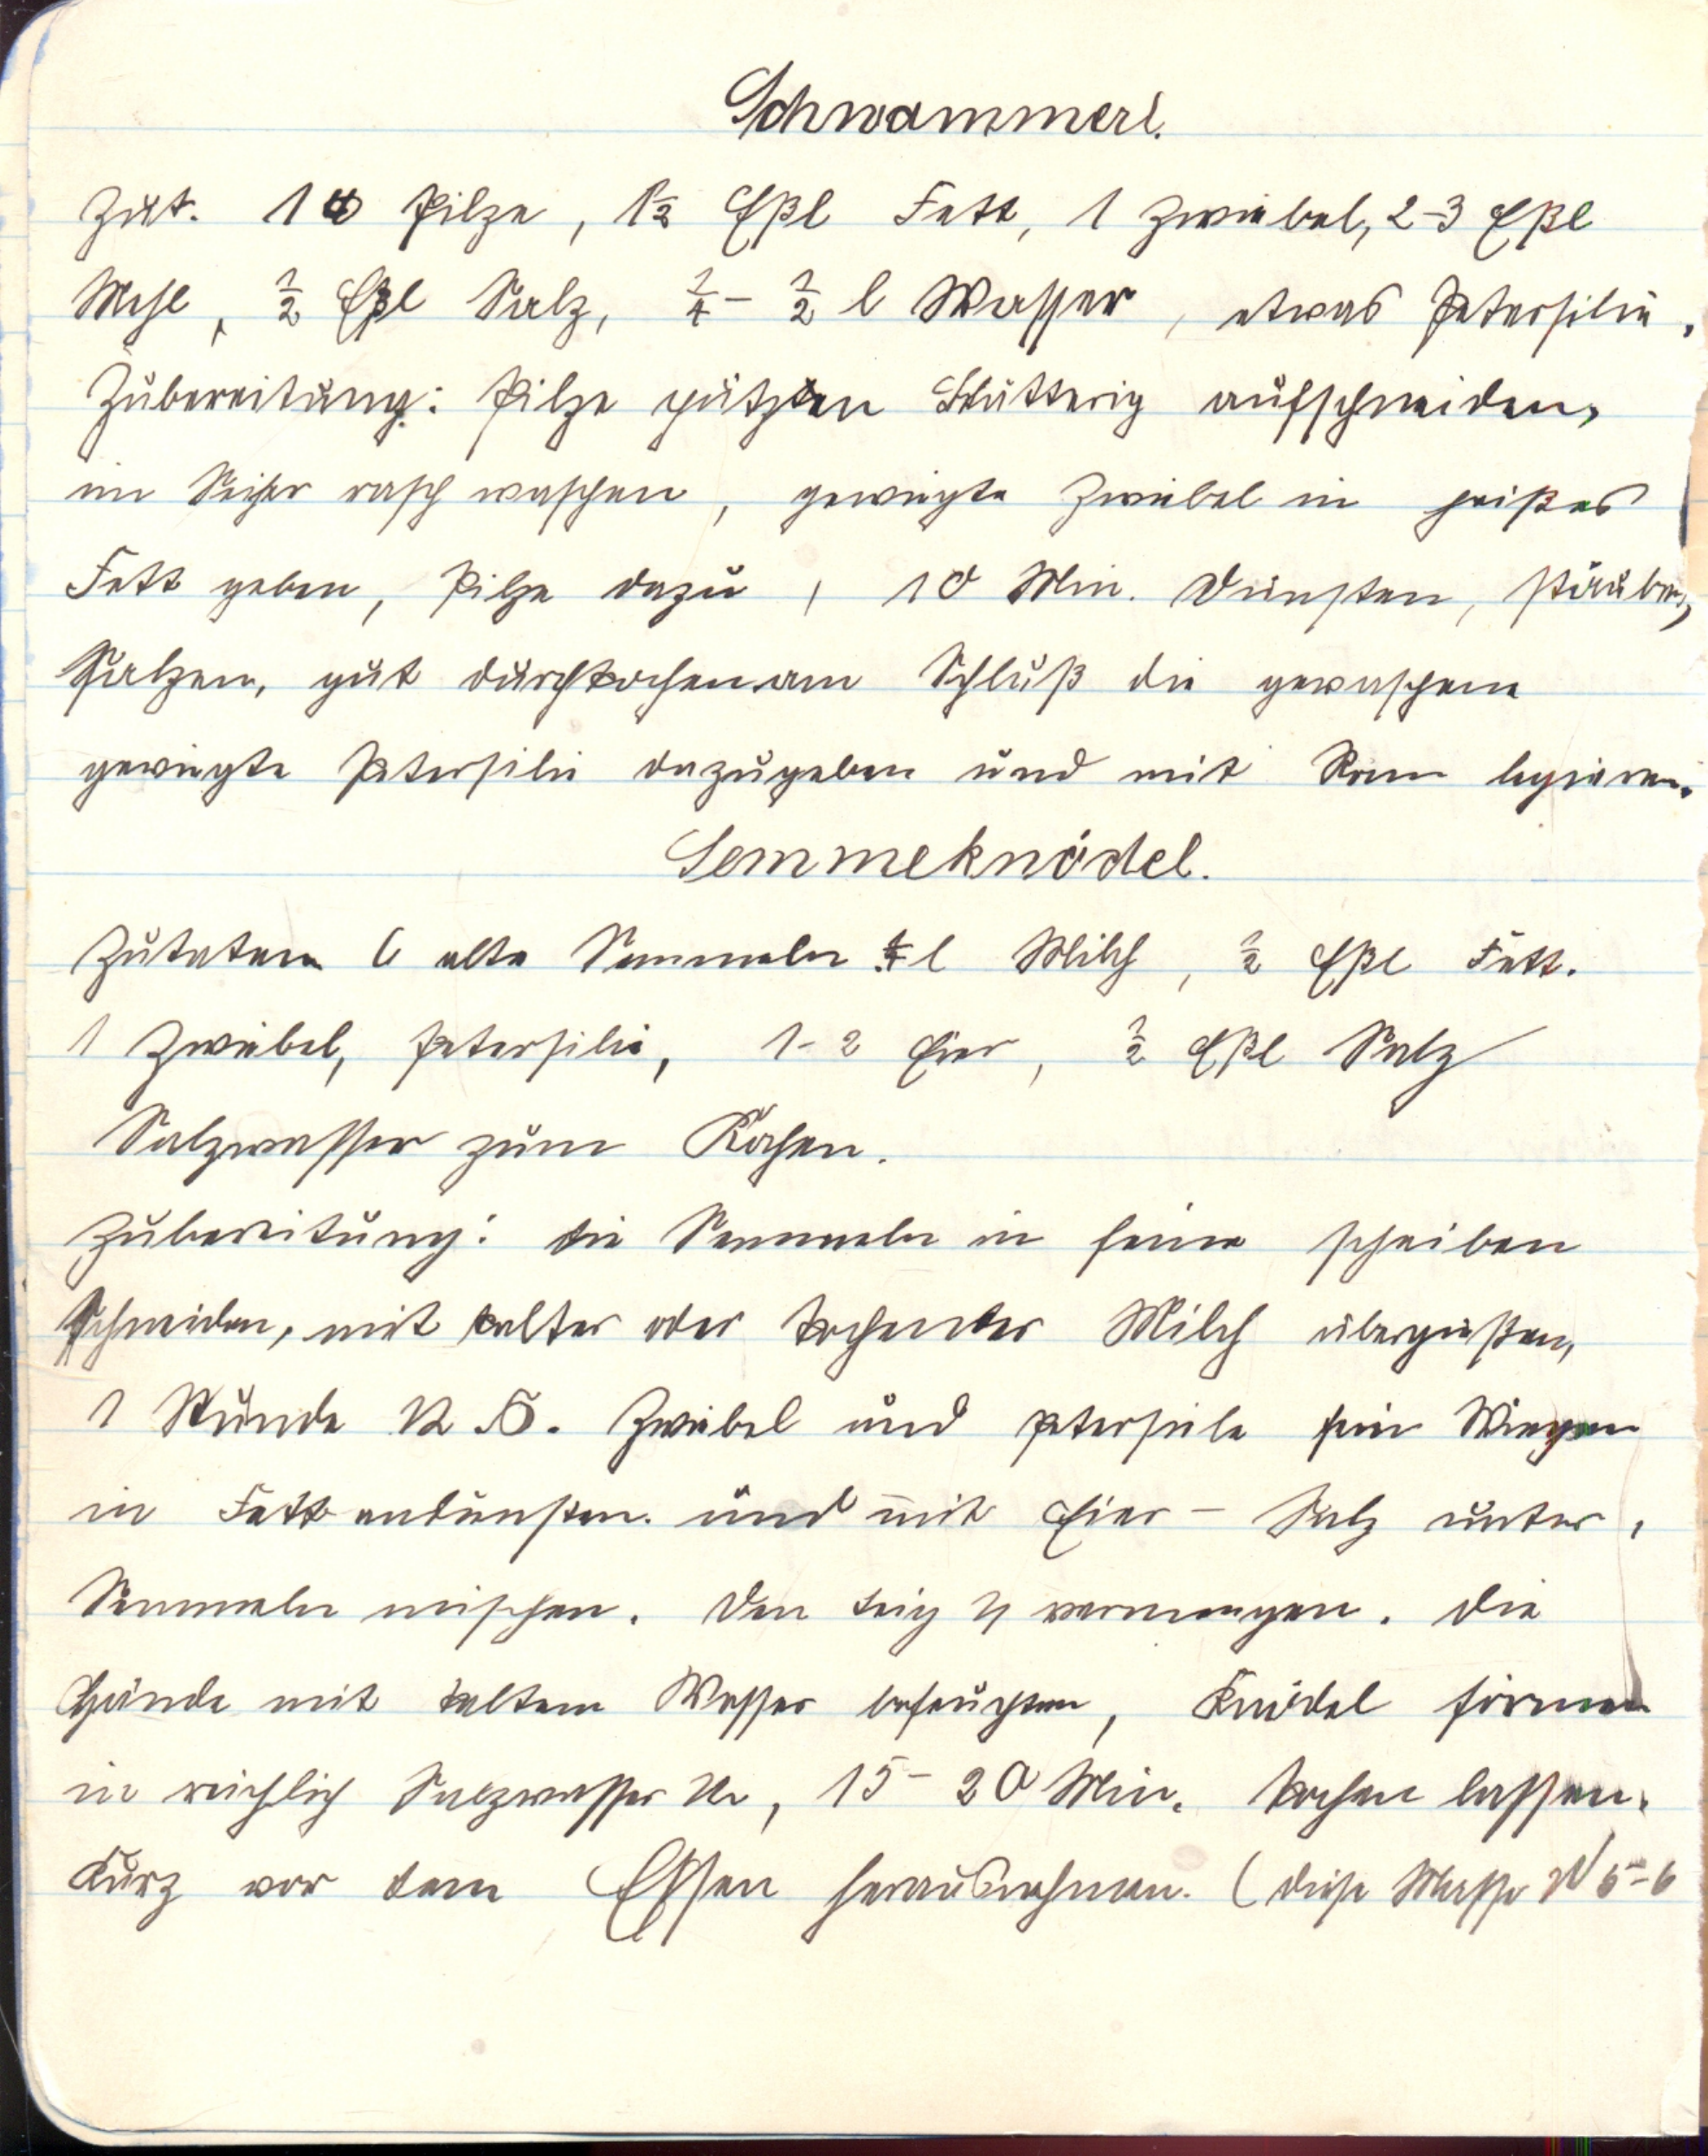 Schwammerl.
Zut. 1 ℔ Pilze, 1½ Eßl Fett, 1 Zwiebel, 2-3 Eßl
Mehl, ½ Eßl Salz, ¼ - ½ l Wasser, etwas Petersilie.
Zubereitung: Pilze putzen blätterig aufschneiden,
im Seiher rasch waschen, gewiegte Zwiebel in heißes
Fett geben, Pilze dazu, 10 Min. dünsten, stäuben,
Salzen, gut durchkochen am Schluß die gewaschene
gewiegte Petersilie dazugeben und mit Ram legieren.
Semmeknödel.
Zutaten 6 alte Semmeln ¼ l Milch, ½ Eßl Fett.
1 Zwiebel, Petersilie, 1-2 Eier, ½ Eßl Salz
Salzwasser zum Kochen.
Zubereitung: die Semmeln in feine scheiben
Schneiden, mit kalter oder kochender Milch übergießen,
1 Stunde Zwiebel und petersile fein Wiegen
in Fett andünsten. und mit Eier - Salz unter,
Semmeln mischen. Den teig vermengen. Die
Hände mit kaltem Wasser befeuchten, Knödel formen
in reichlich Salzwasser, 15 - 20 Min. kochen lassen.
Kurz vor dem Essen herausnehmen. (diese Masse 5-6